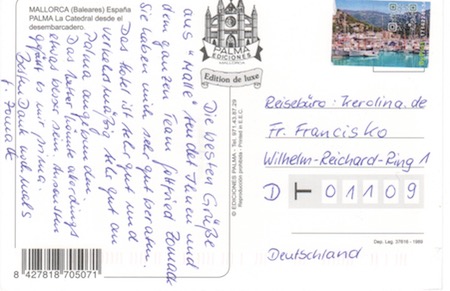 MALLORCA (Baleares) España
PALMA La Catedral desde el
desembarcadero.
PALMA
EDICIONES
MALLORCA
Edition de luxe
© EDICIONES PALMA - Tel. 971 43 87 29
Reproducción prohibida - Printed in E.E.C.
Die besten Grüße
aus "Malle" sendet Ihnen und
dem ganzen Team Gottfried
Sie haben mich sehr gut beraten.
Das Hotel ist sehr gut und
verkehrsmäßig sehr gut an
Palma angebunden.
Das Wetter könnte allerdings
etwas besser sein. Ansonsten
gefällt es mir prima.
Besten Dank nochmals
Reisebüro: Kerolina.de
Fr. Francisko
Wilhelm-Reichard-Ring 1
D 01109
Deutschland
Dep. Leg. 07816 - 1989
8 427818 705071